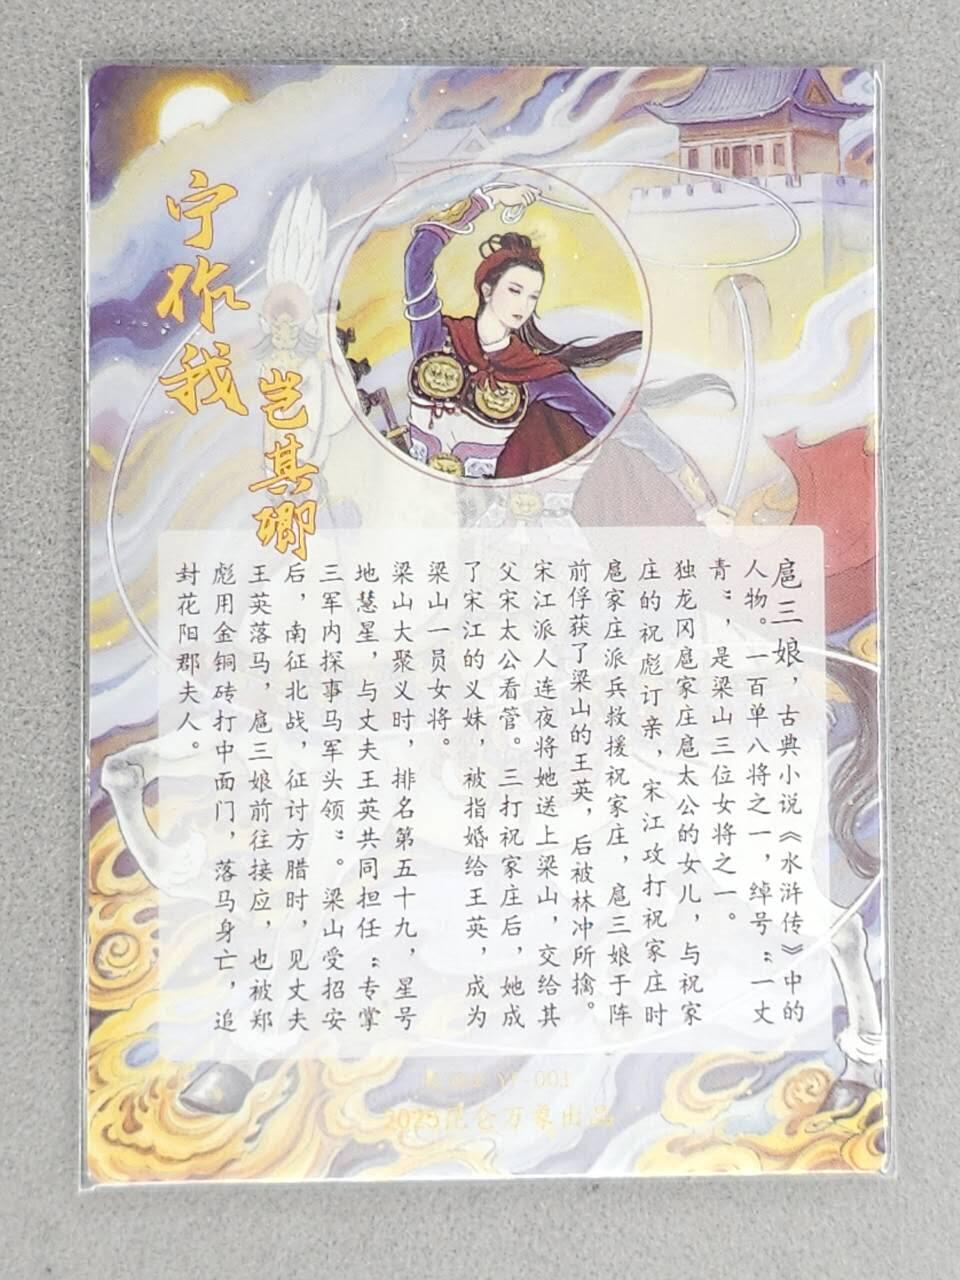 宁作我
岂其卿
扈三娘，古典小说《水浒传》中的
人物。一百单八将之一，绰号“一丈
青”，是梁山三位女将之一。
独龙冈扈家庄扈太公的女儿，与祝家
庄的祝彪订亲，宋江攻打祝家庄时
扈家庄派兵救援祝家庄，扈三娘于阵
前俘获了梁山的王英，后被林冲所擒。
宋江派人连夜将她送上梁山，交给其
父宋太公看管。三打祝家庄后，她成
了宋江的义妹，被指婚给王英，成为
梁山一员女将。
梁山大聚义时，排名第五十九，星号
地慧星，与丈夫王英共同担任“专掌
三军内探事马军头领”。梁山受招安
后，南征北战，征讨方腊时，见丈夫
王英落马，扈三娘前往接应，也被郑
彪用金铜砖打中面门，落马身亡，追
封花阳郡夫人。
2025昆仑万象出品